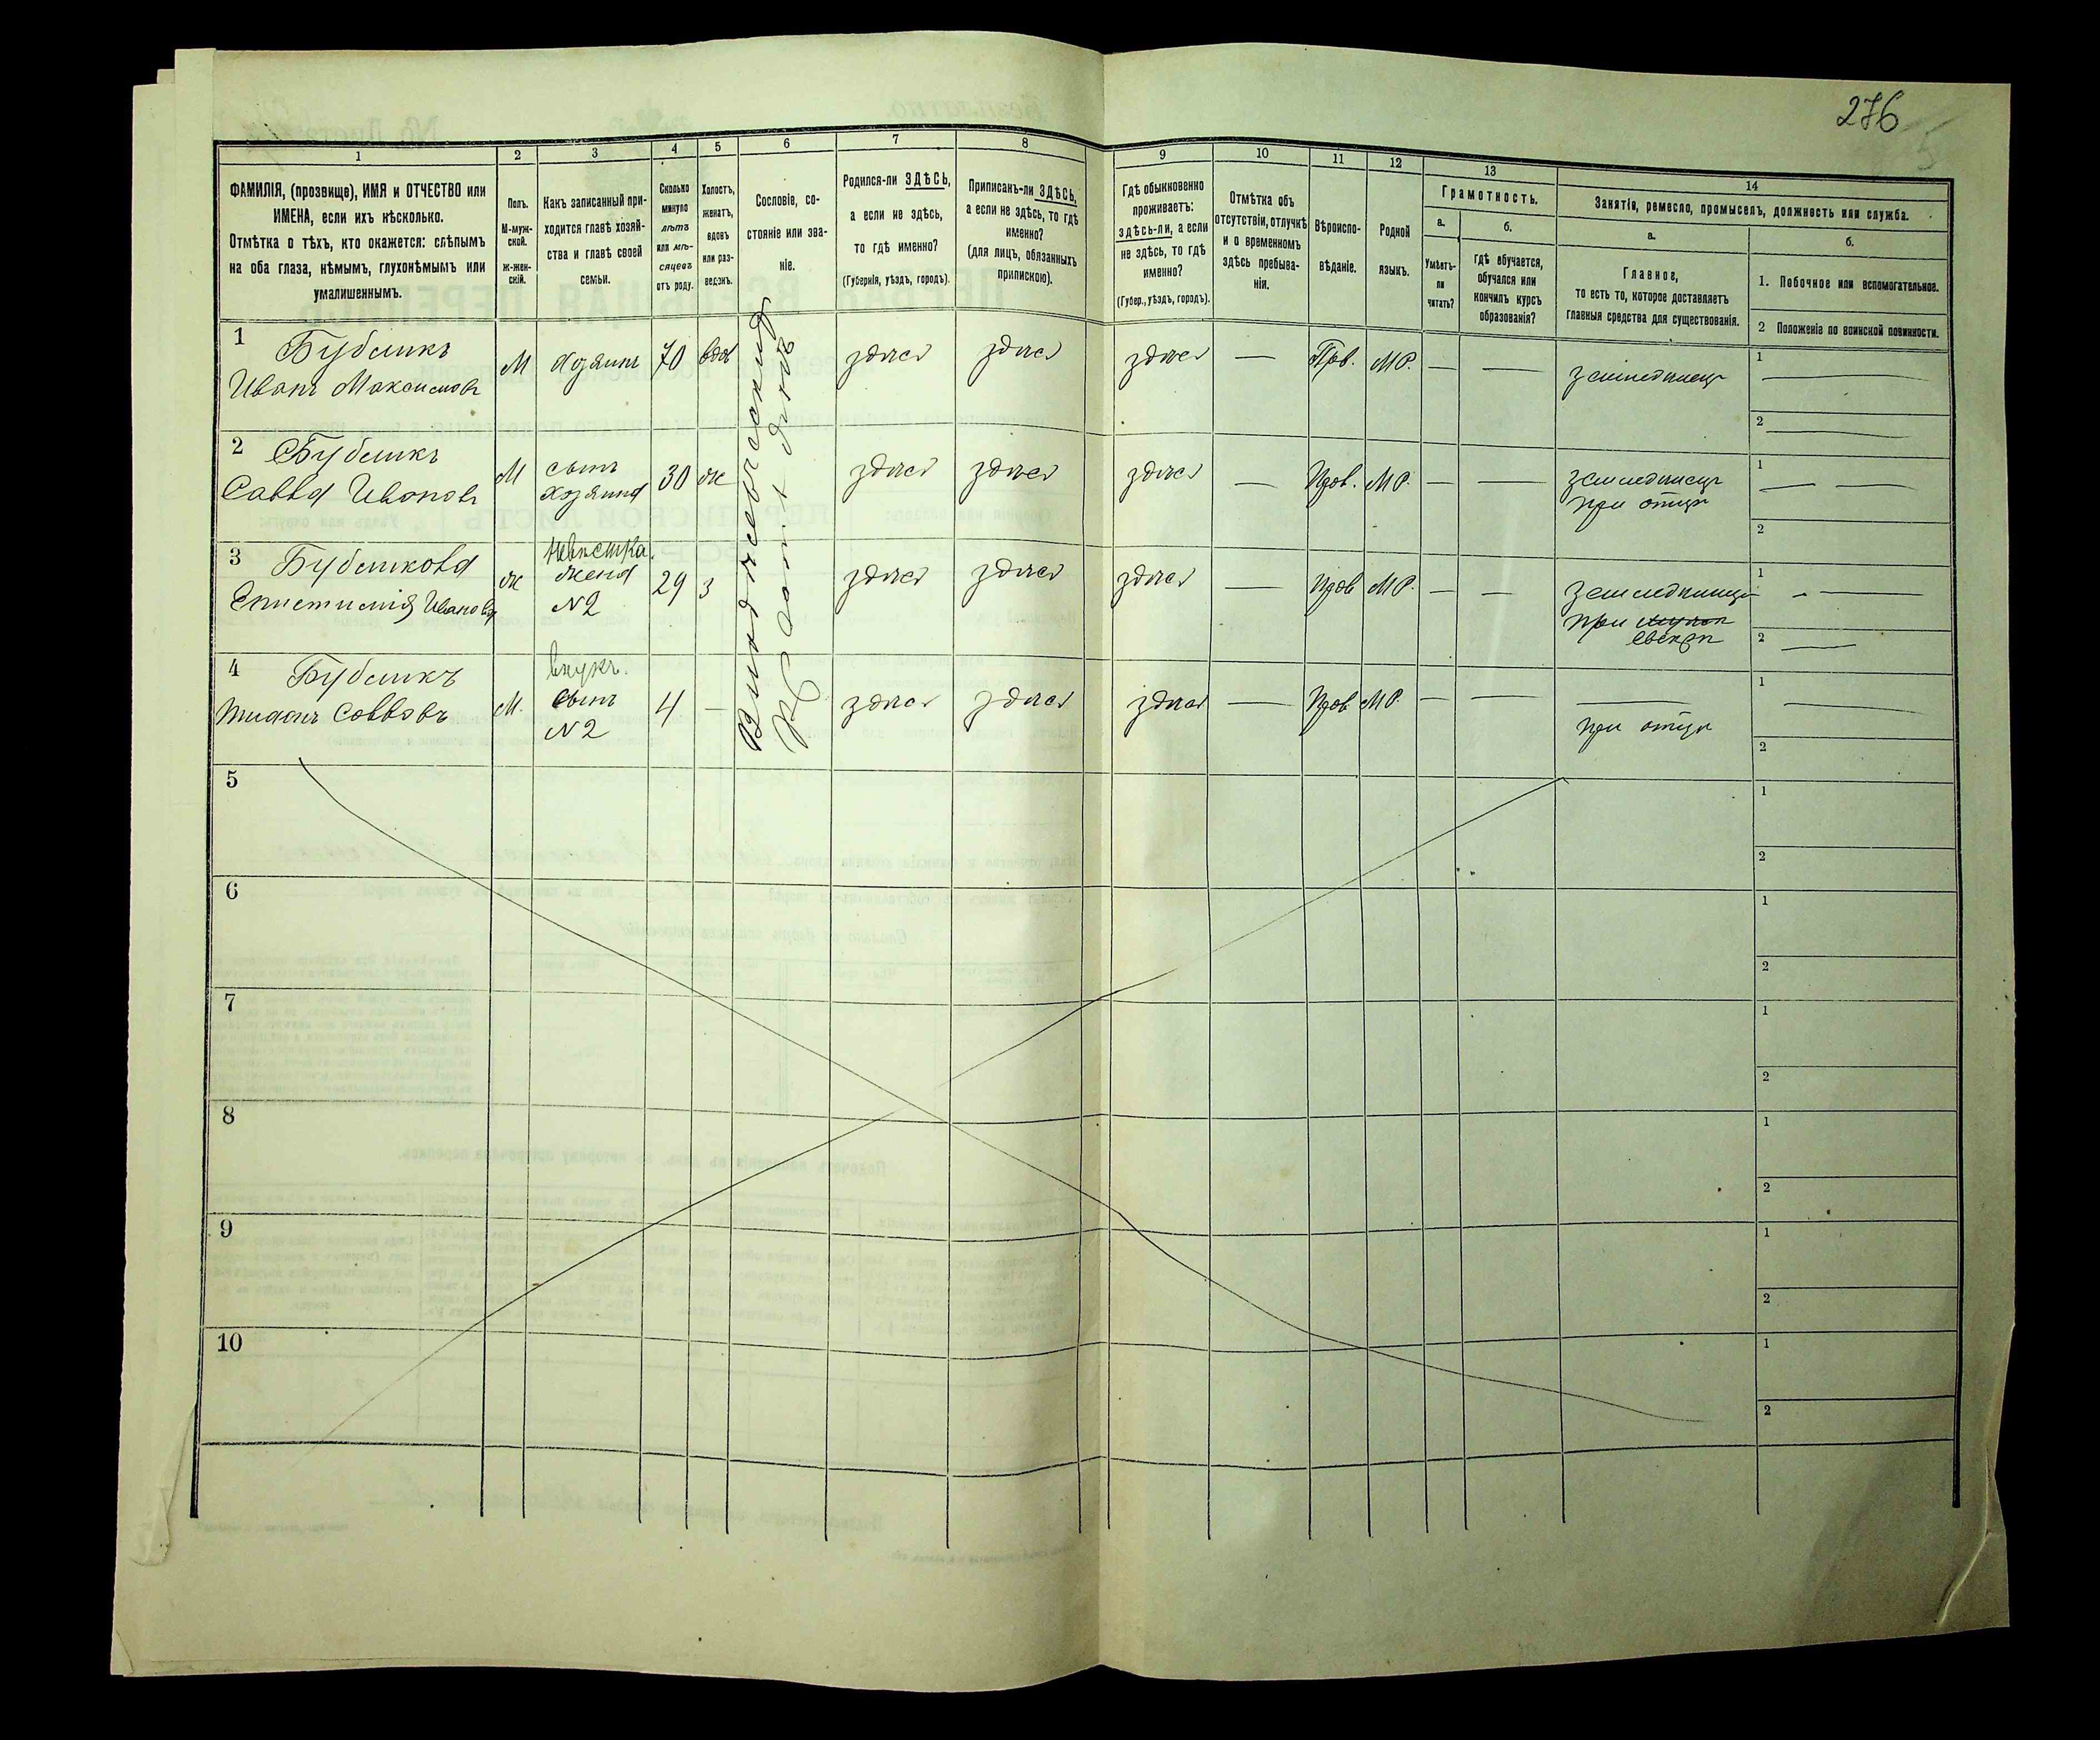 276
1
2
3
4
5
6
7
8
9
10
11
12
13
14
ФАМИЛІЯ, (прозвище), ИМЯ и ОТЧЕСТВО или
ИМЕНА, если ихъ нѣсколько.
Отмѣтка о тѣхъ, кто окажется: слѣпымъ
на оба глаза, нѣмымъ, глухонѣмымъ или
умалишеннымъ.
Полъ.
М-муж-
ской.
ж-жен-
скій.
Какъ записанный при-
ходится главѣ хозяй-
ства и главѣ своей
семьи.
Сколько
минуло
лѣтъ
или мѣ-
сяцевъ
отъ роду.
Холостъ,
женатъ,
вдовъ
или раз-
веденъ.
Сословіе, со-
стояніе или зва-
ніе.
Родился-ли ЗДѢСЬ,
а если не здѣсь,
то гдѣ именно?
(Губернія, уѣздъ, городъ).
Приписанъ-ли ЗДѢСЬ,
а если не здѣсь, то гдѣ
именно?
(для лицъ, обязанныхъ
припискою).
Гдѣ обыкновенно
проживаетъ:
здѣсь-ли, а если
не здѣсь, то гдѣ
именно?
(Губер., уѣздъ, городъ).
Отмѣтка объ
отсутствіи, отлучкѣ
и о временномъ
здѣсь пребыва-
ніи.
Вѣроиспо-
вѣданіе.
Родной
языкъ.
Грамотность.
а.
Умѣетъ-
ли
читать?
б.
гдѣ обучается,
обучался или
кончилъ курсъ
образованія?
Занятія, ремесло, промыселъ, должность или служба.
а.
Главное,
то есть то, которое доставляетъ
главныя средства для существованія.
б.
1. Побочное или вспомогательное.
2 Положеніе по воинской повинности.
1
Бубликъ
Иванъ Максимовъ
М
Хозяинъ
70
вдов
здѣсь
здѣсь
здѣсь
—
Прв.
МР.
—
—
земледѣлецъ
1
2
2
Бубликъ
Савва Ивановъ
М
сынъ
хозяина
30
ж
здѣсь
здѣсь
здѣсь
—
Прв.
МР.
—
—
земледѣлецъ
при отцѣ
1
2
3
Бубликова
Епистимія Иванова
ж
невѣстка.
жена
N2
29
з
здѣсь
здѣсь
здѣсь
—
Прв
МР.
—
—
земледѣлица
при мужѣ
свекрѣ
1
2
4
Бубликъ
Саввовъ
М.
внукъ.
сынъ
N2
4
—
здѣсь
здѣсь
здѣсь
—
Прв
МР.
—
—
при отцѣ
1
2
5
1
2
6
1
2
7
1
2
8
1
2
9
1
2
10
1
2